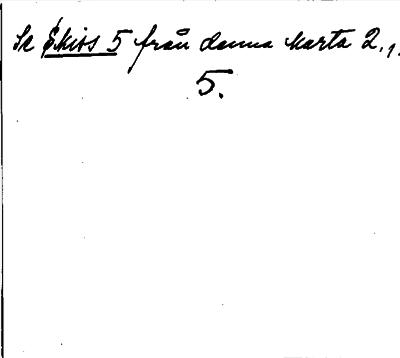 Se Skiss 5 från denna karta 2.1.
5.